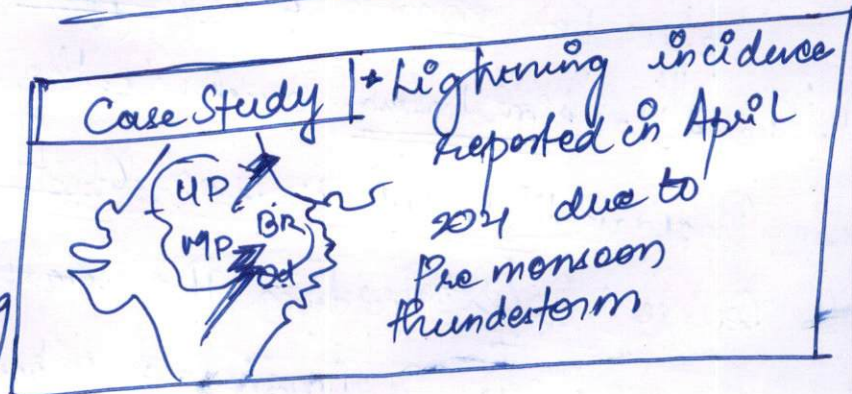 Case Study
* Lightning incidence
reported in April
due to
Pre monsoon
thunderstorm
UP
BR
MP